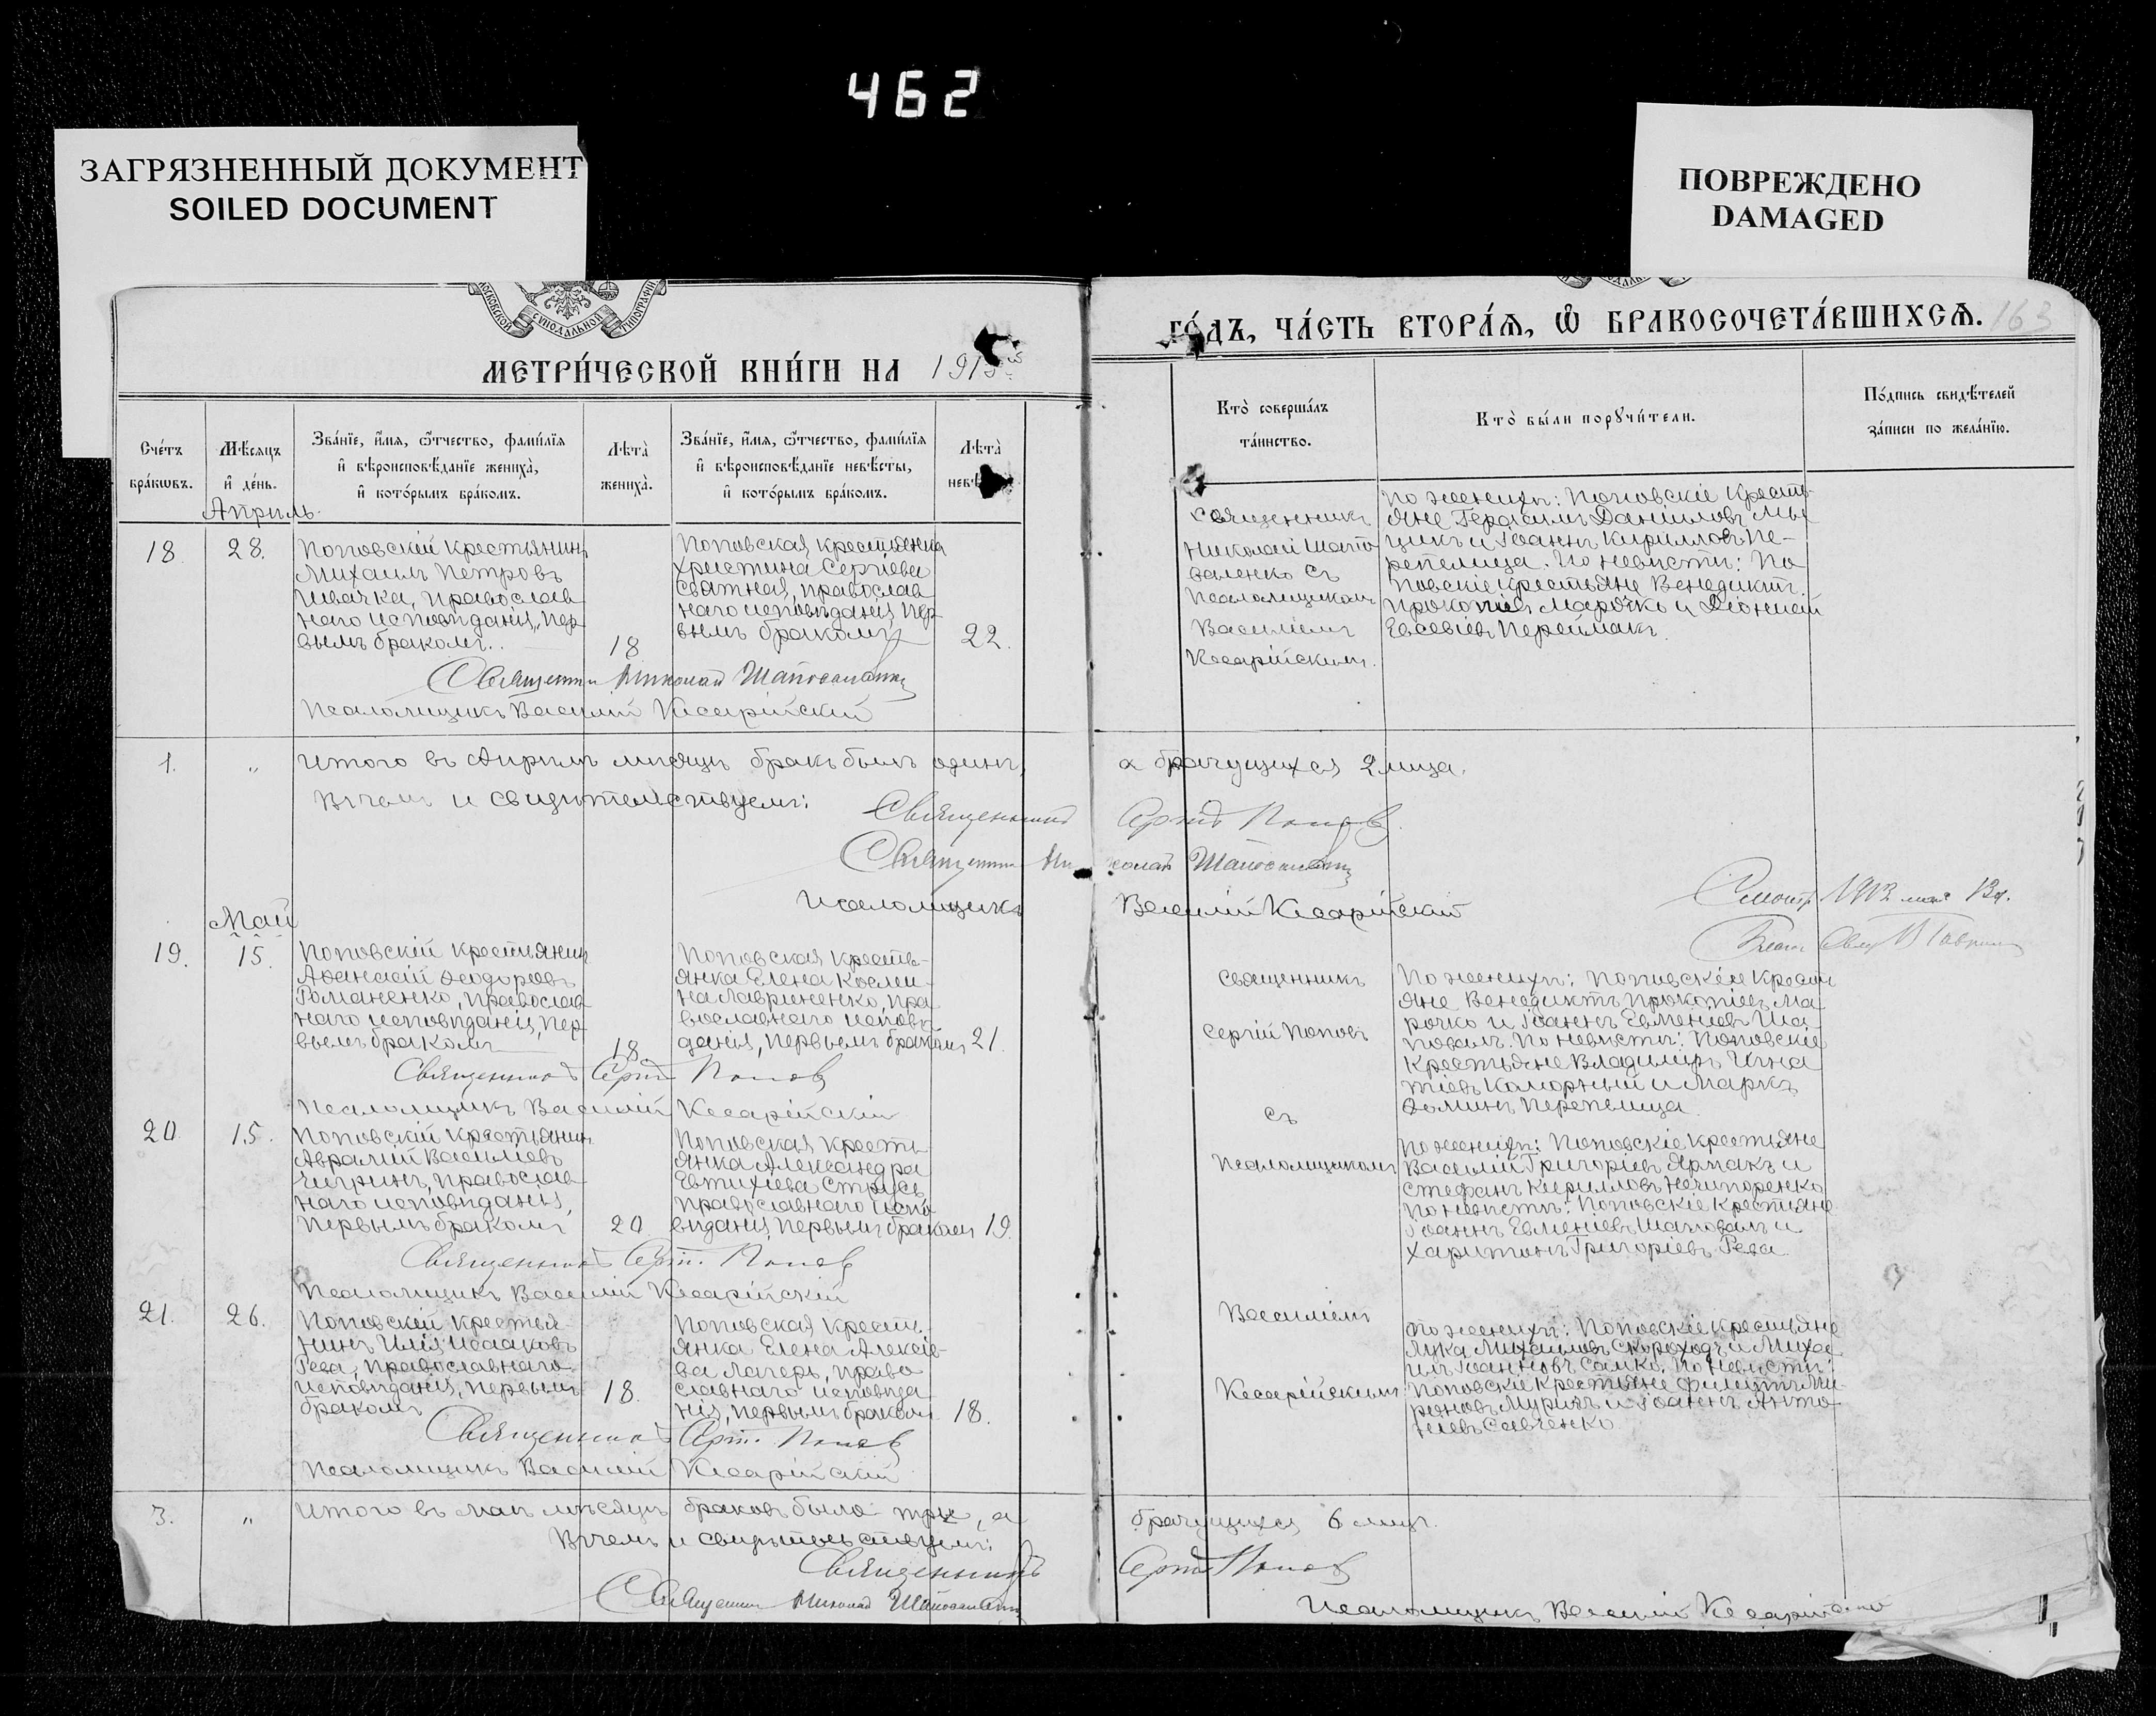 462
ЗАГРЯЗНЕННЫЙ ДОКУМЕНТ
SOILED DOCUMENT
ПОВРЕЖДЕНО
DAMAGED
МОСКОВСКОЙ СУНОДАЛЬНОЙ ТИПОГРАФІИ
МЕТРИ́ЧЕСКОЙ КНИ́ГИ НА 191
ГО́ДЪ, ЧА́СТЬ ВТОРА́Я, Ѡ БРАКОСОЧЕТА́ВШИХСЯ. 163
Сче́тъ
бра́кѡвъ.
Мѣ́сяцъ
и҆ де́нь.
Зва́нїе, и҆́мя, ѻ҆́тчество, фами́лїя
и҆ вѣроисповѣ́данїе жениха̀,
и҆ кото́рымъ бра́комъ.
Лѣ́та̀
жениха̀.
Зва́нїе, и҆́мя, ѻ҆́тчество, фами́лїя
и҆ вѣроисповѣ́данїе невѣ́сты,
и҆ кото́рымъ бра́комъ.
Лѣ́та̀
невѣ́
Кто̀ соверша́лъ
та́инство.
Кто̀ бы́ли порꙋчи́тели.
По́дпись свидѣ́телей
за́писи по жела́нїю.
Апрѣль.
18
28.
Поповскій крестьянинъ
Михаилъ Петровъ
Швачка, православ
наго исповѣданія, пер
вымъ бракомъ.
18
Поповская крестьянка
Христина Сергіева
Святная, православ
наго исповѣданія, пер
вымъ бракомъ
22.
Священникъ
Николай Шапо
валенко съ
псаломщикомъ
Василіемъ
Кесарійскимъ.
По женихѣ: Поповскіе кресть
яне Герасимъ Даніиловъ Мы
цикъ и Іоаннъ Кирилловъ Пе-
репелица. По невѣстѣ: По
повскіе крестьяне Венедиктъ
Прокопіевъ Марочко и Діонисій
Евсевіевъ Переймакъ.
Священникъ Николай Шаповаленко
Псаломщикъ Василій Кесарійскій
1.
"
Итого въ Апрѣлѣ мѣсяцѣ бракъ былъ одинъ, а брачущихся 2 лица.
Въ чемъ и свидѣтельствуемъ:
Священникъ Сергій Поповъ
Священникъ Николай Шаповаленко
Псаломщикъ Василій Кесарійскій
Май
19.
15.
Поповскій крестьянинъ
Аѳанасій Ѳеодоровъ
Романенко, православ
наго исповѣданія, пер
вымъ бракомъ
18
Поповская кресть-
янка Елена Косми-
на Лавриненко, пра
вославнаго исповѣ
данія, первымъ бракомъ
21.
Священникъ
Сергій Поповъ
съ
псаломщикомъ
Василіемъ
Кесарійскимъ
По женихѣ: Поповскіе кресть
яне Венедиктъ Прокопіевъ Ма
рочко и Іоаннъ Евменіевъ Ша
повалъ. По невѣстѣ: Поповскіе
крестьяне Владиміръ Игна
тіевъ Каморный и Маркъ
Ѳоминъ Перепелица.
Священникъ Сергій Поповъ
Псаломщикъ Василій Кесарійскій
20.
15.
Поповскій крестьянинъ
Аврамій Василіевъ
Чигринъ, православ
наго исповѣданія,
первымъ бракомъ
20
Поповская кресть
янка Александра
Евтихіева Струсь
православнаго испо
вѣданія, первымъ бракомъ
19.
По женихѣ: Поповскіе крестьяне
Василій Григоріевъ Ярмакъ и
Стефанъ Кирилловъ Нечипоренко
По невѣстѣ: Поповскіе крестьяне
Іоаннъ Евменіевъ Шаповалъ и
Харитонъ Григоріевъ Рева
Священникъ Сергій Поповъ
Псаломщикъ Василій Кесарійскій
21.
26.
Поповскій крестья-
нинъ Илія Исааковъ
Рева, православнаго
исповѣданія, первымъ
бракомъ
18.
Поповская кресть-
янка Елена Алексіе-
ва Лагерь, право
славнаго исповѣда
нія, первымъ бракомъ
18.
По женихѣ: Поповскіе крестьяне
Лука Михаиловъ Скороходъ и Миха
илъ Іоанновъ Самко. По невѣстѣ:
Поповскіе крестьяне Филиппъ Ми
роновъ и Іоаннъ Анто
ніевъ Савченко
Священникъ Сергій Поповъ
Псаломщикъ Василій Кесарійскій
3.
"
Итого въ маѣ мѣсяцѣ браковъ было три, а брачущихся 6 лицъ.
Въ чемъ и свидѣтельствуемъ:
Священникъ Сергій Поповъ
Священникъ Николай Шаповаленко
Псаломщикъ Василій Кесарійскій